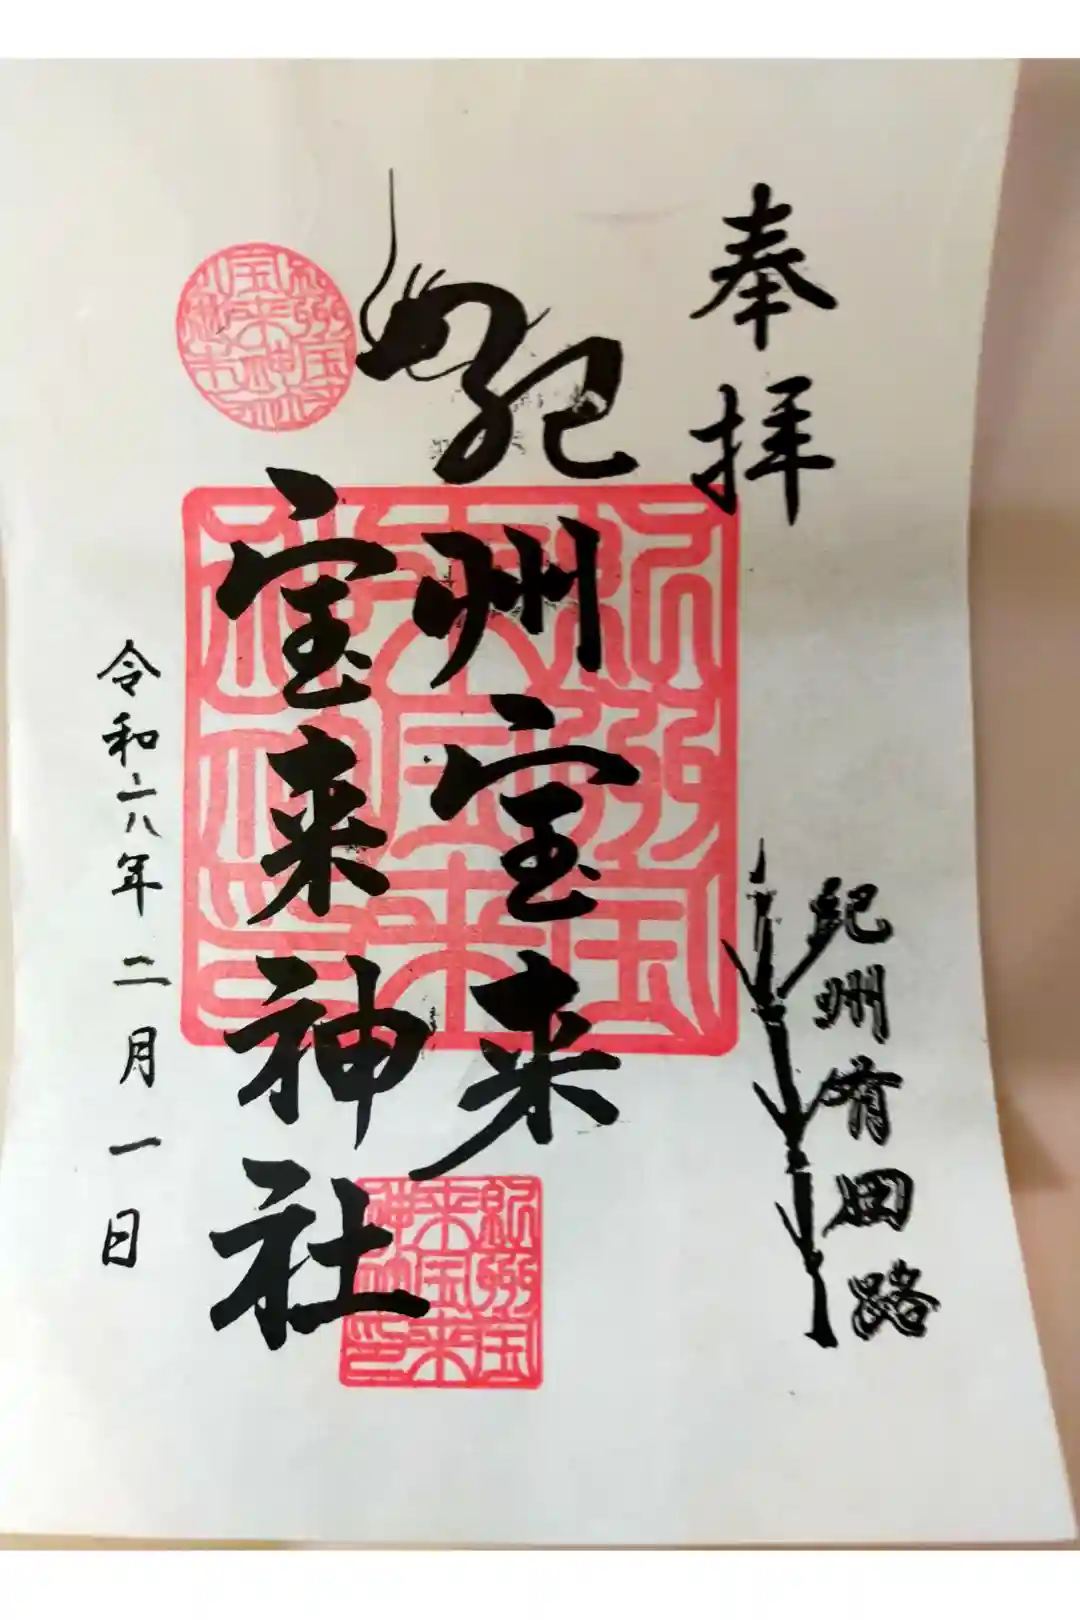 奉拝
紀州有田路
紀州宝来
宝来神社
令和六年二月一日